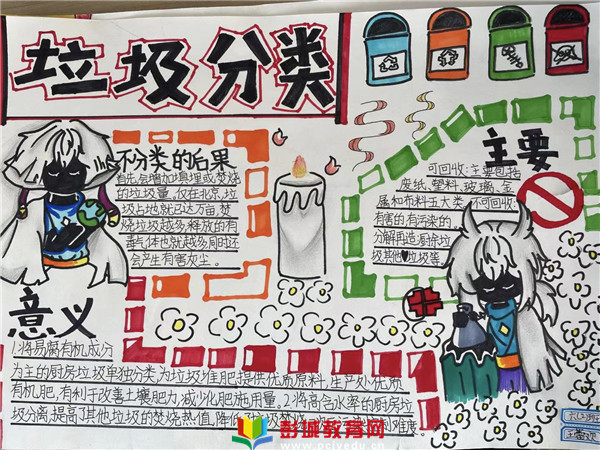 垃圾分类
不分类的后果
首先会增加填埋或焚烧
的垃圾量,仅在北京,垃
圾占地就已达万亩,焚
烧垃圾越多,释放的有
毒气体也就越多,同时还
会产生有害灰尘。
主要
可回收:主要包括
废纸、塑料、玻璃、金
属和布料五大类 不可回收:
有害的有污染的,
分解再造 厨余垃
圾 其他 垃圾等
意义
1.将易腐有机成分
为主的厨房垃圾单独分类,为垃圾堆肥提供优质原料,生产处优质
有机肥,有利于改善土壤肥力,减少化肥施用量。2.将高含水率的厨房垃
圾分离,提高了其他垃圾的焚烧热值,降低 垃圾焚烧 难度。
彭城教育网
www.pcjyedu.com